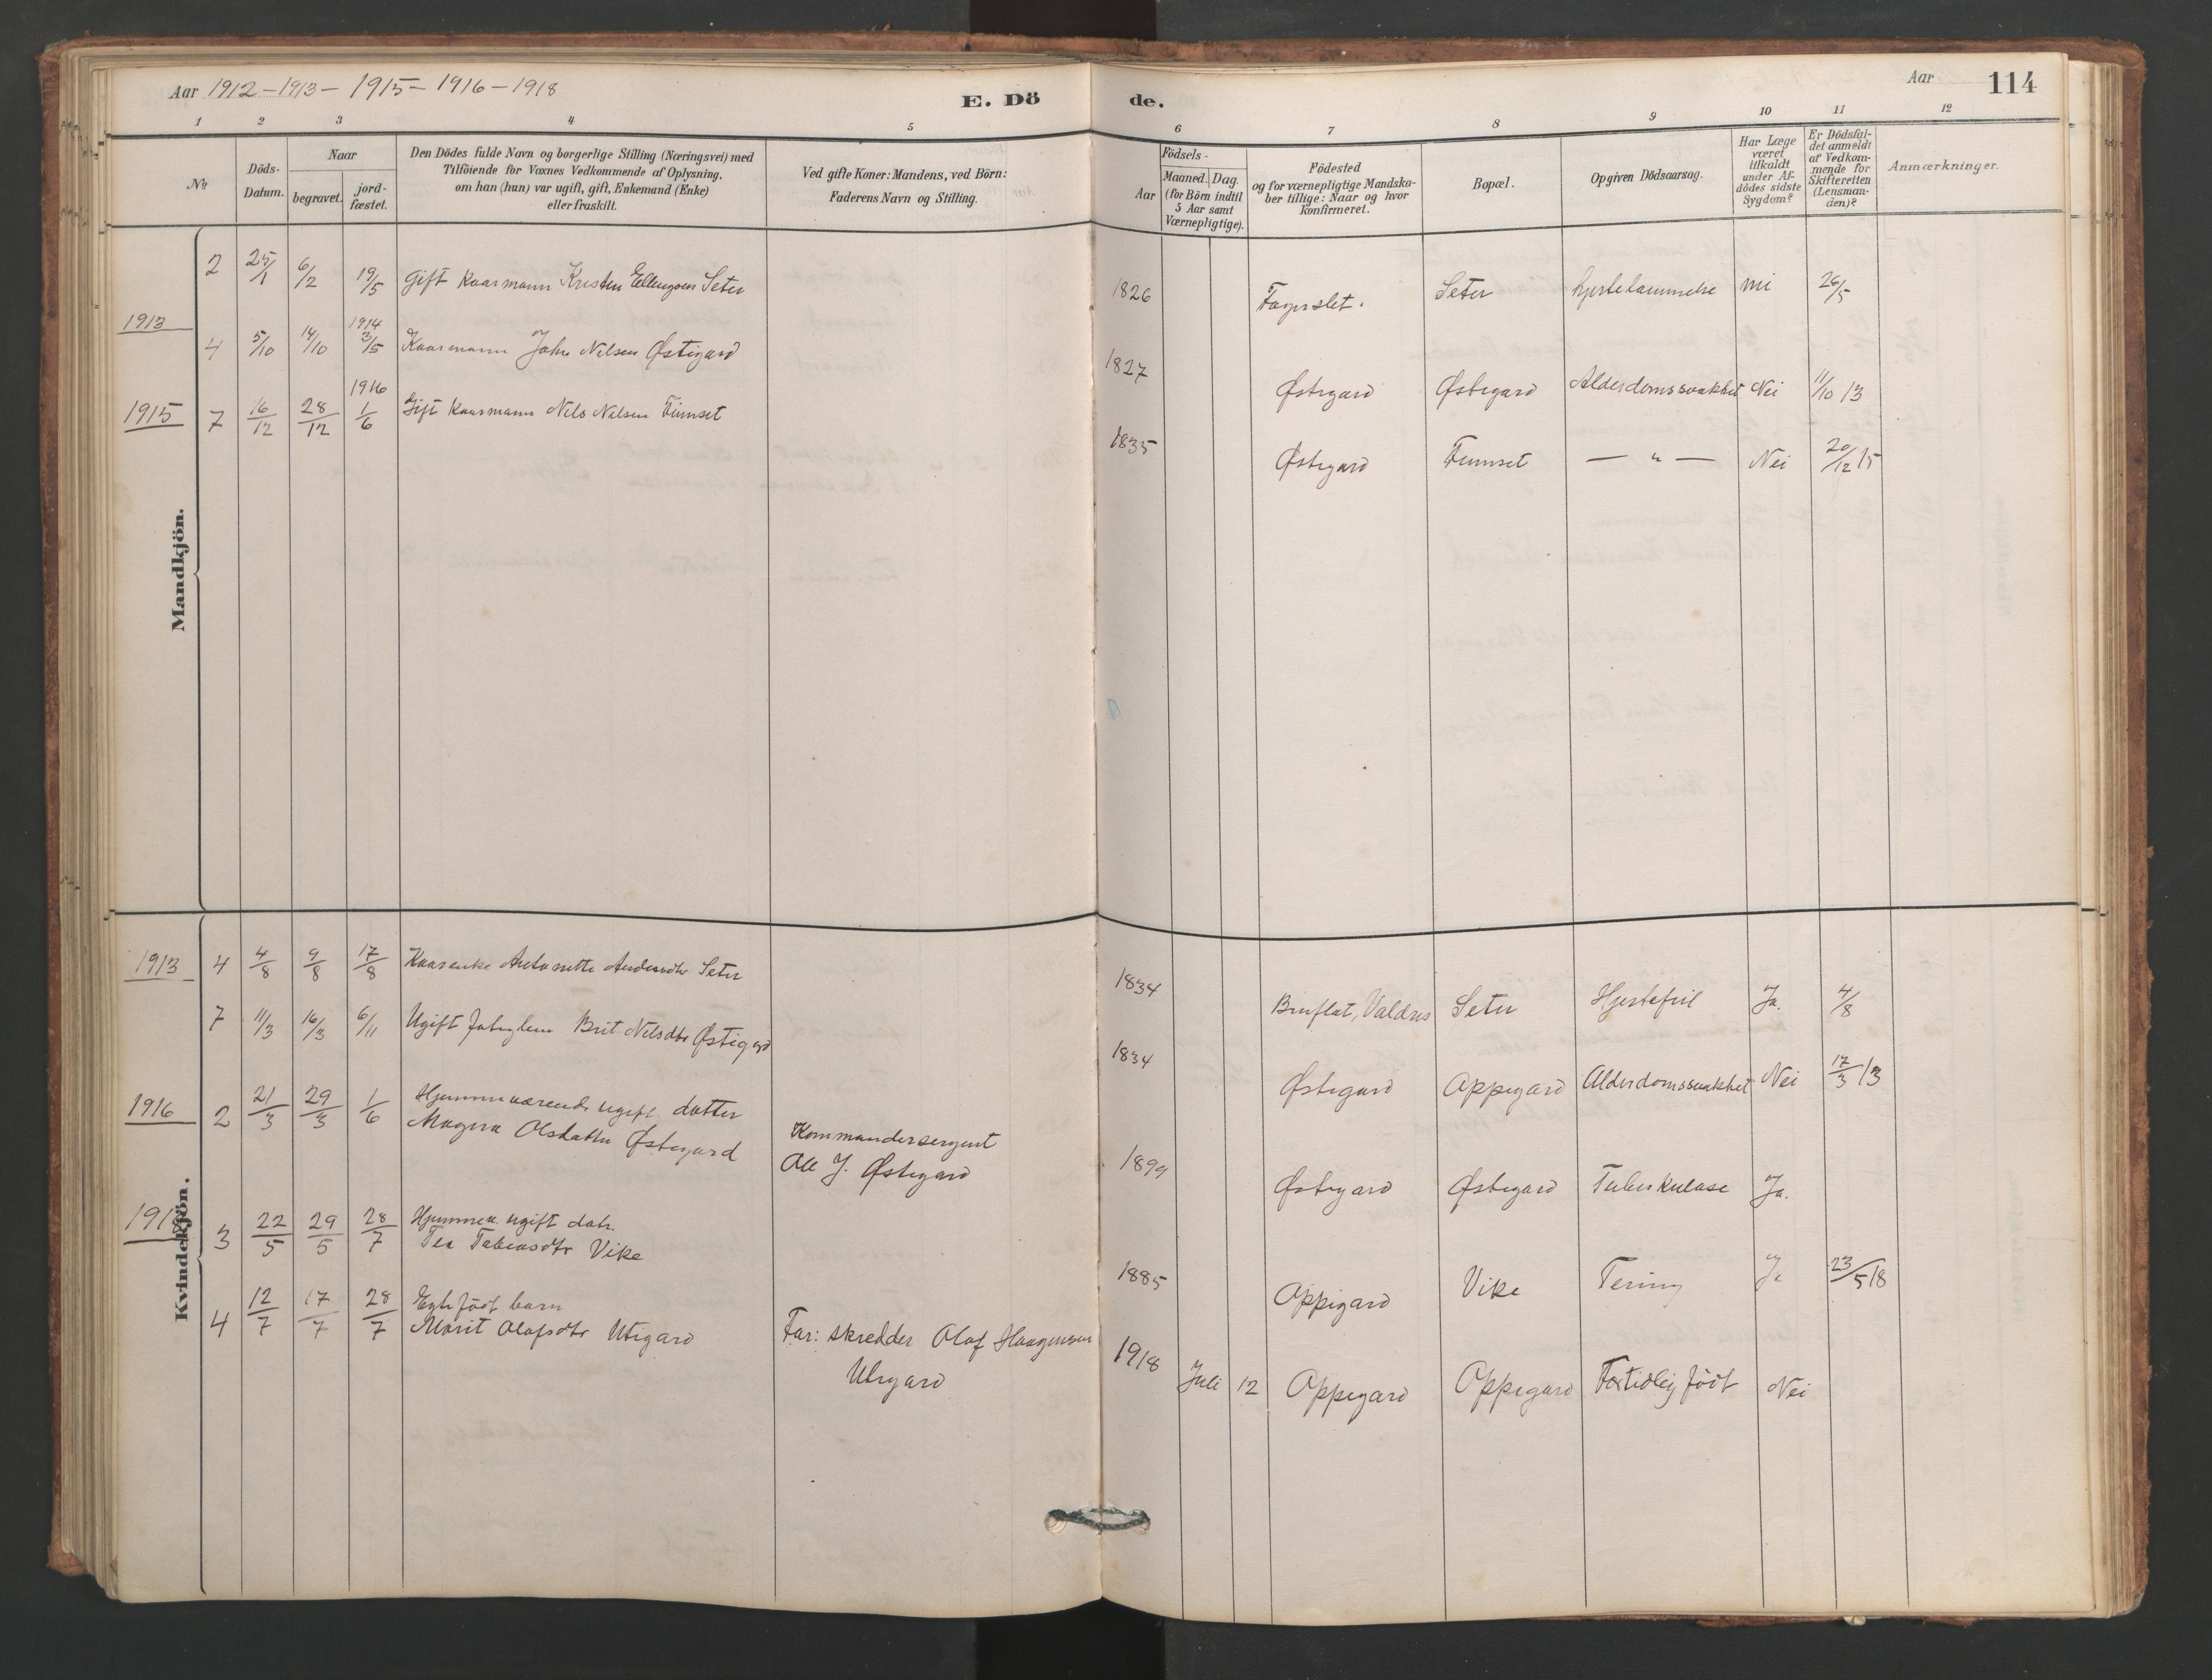 Aar 1912 - 1913 - 1915 - 1916 - 1918
E. Dö de.
Aar 114
1 2 3 4 5 6 7 8 9 10 11 12
No
Döds-Datum.
Naar
begravet.
jord-fæstet.
Den Dödes fulde Navn og borgerlige Stilling (Næringsvei) med
Tilföiende for Voxnes Vedkommende af Oplysning,
om han (hun) var ugift, gift, Enkemand (Enke)
eller fraskilt.
Ved gifte Koner: Mandens, ved Börn:
Faderens Navn og Stilling.
Födsels-
Aar
Maaned. Dag.
(for Börn indtil
5 Aar samt
Værnepligtige).
Födested
og for værnepligtige Mandska-
ber tillige: Naar og hvor
konfirmeret.
Bopæl.
Opgiven Dödsaarsag.
Har Læge
været
tilkaldt
under Af-
dödes sidste
Sygdom?
Er Dödsfal-
det anmeldt
af Vedkom-
mende for
Skifteretten
(Lensman-
den)?
Anmærkninger.
Mandkjön.
2 25/1 6/2 19/5 Gift Kaarmann Kristen Ellingsen Seter 1826 Fagerslet. Seter hjertelammelse 26/5
1913
4 5/10 14/10 1914 3/5 Kaarmann John Nilsen Østigard 1827 Østegard Østegard Alderdomssvakhet Nei 11/10 13
1915
7 16/12 28/12 1916 1/6 Gift Kaarmann Nils Nilsen Finnset 1835 Østegard Finnset — " — Nei 20/12 15
Kvindekjön.
1913
4 4/8 9/8 17/8 Kaarenke Antonette Andersdtr Seter 1834 Bruflat, Valdres Seter Hjertefeil Ja. 4/8
7 11/3 16/3 6/11 Ugift Brit Nilsdtr Østigard 1834 Østegard Oppegard Alderdomssvakhet Nei 17/3 13
1916
2 21/3 29/3 1/6 Hjemmeværende ugift datter
Magnra Olsdatter Østegard
Kommandersergent
Ole J. Østegard
1899 Østegard Østegard Tuberkulose Ja.
1918
3 22/5 29/5 28/7 Hjemmev. ugift datr.
Tea Tobiasdtr Vike 1885 Oppigard Vike Tering Ja 23/5 18
4 12/7 17/7 28/7 Egtefödt barn
Marit Olafsdtr Utigard
Far: skredder Olaf Haagensen
Utigard
1918 Juli 12 Oppegard Oppegard Fortidlig födt Nei